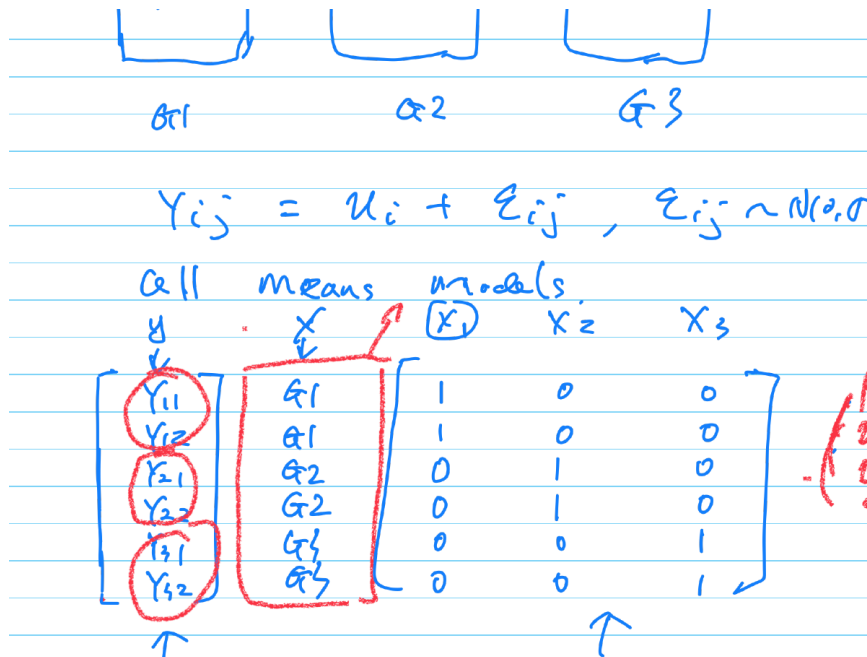 G1 G2 G3
Yij = ui + εij , εij ~ N(0,σ
Cell means models
y X X1 X2 X3
Y11 G1 1 0 0
Y12 G1 1 0 0
Y21 G2 0 1 0
Y22 G2 0 1 0
Y31 G3 0 0 1
Y32 G3 0 0 1